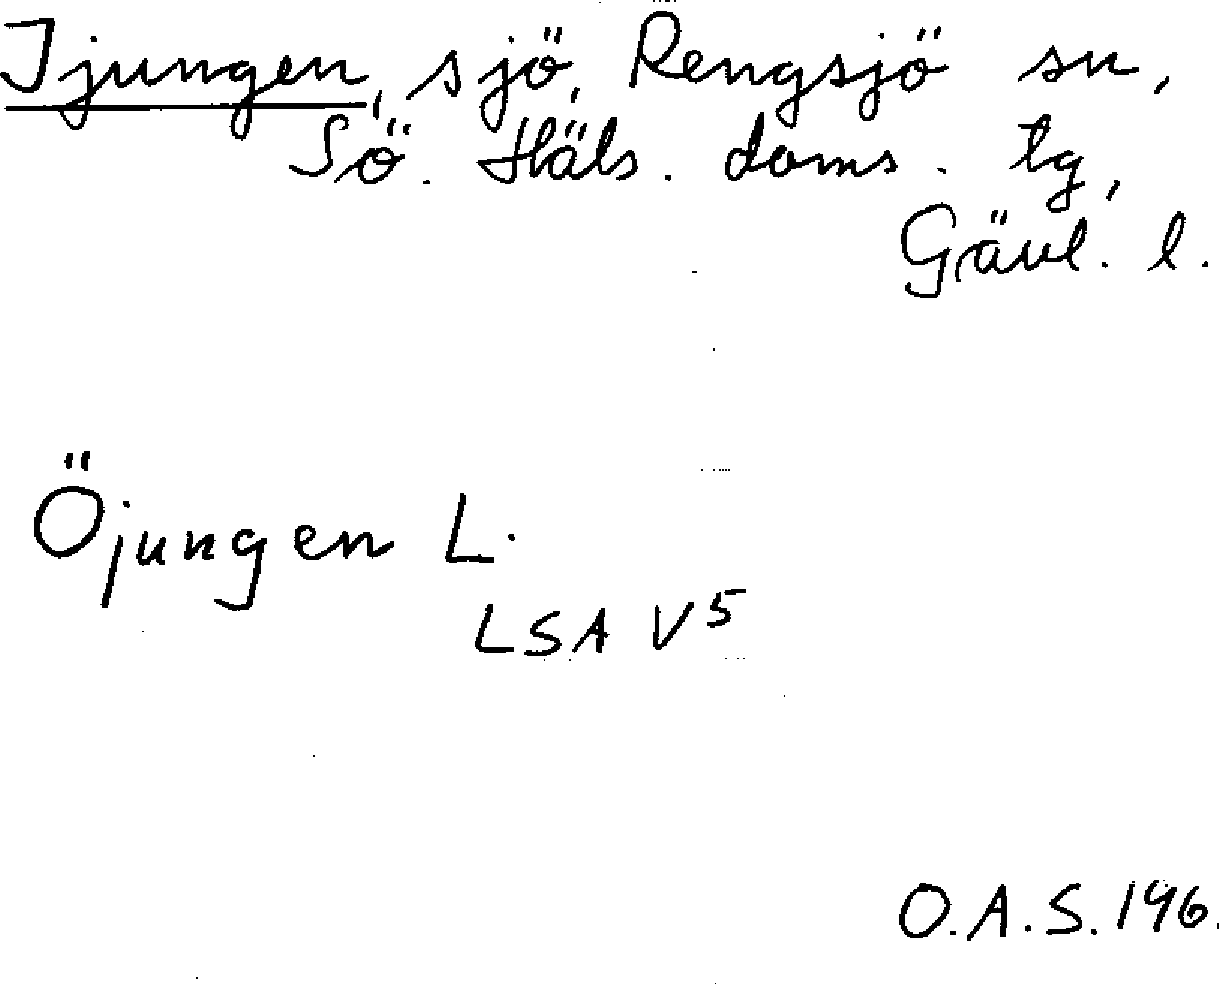 Ijungen, sjö, Rengsjö sn,
Sö. Häls. doms. tg,
Gävl. l.
Öjungen L.
LSA V5
O.A.S. 196.